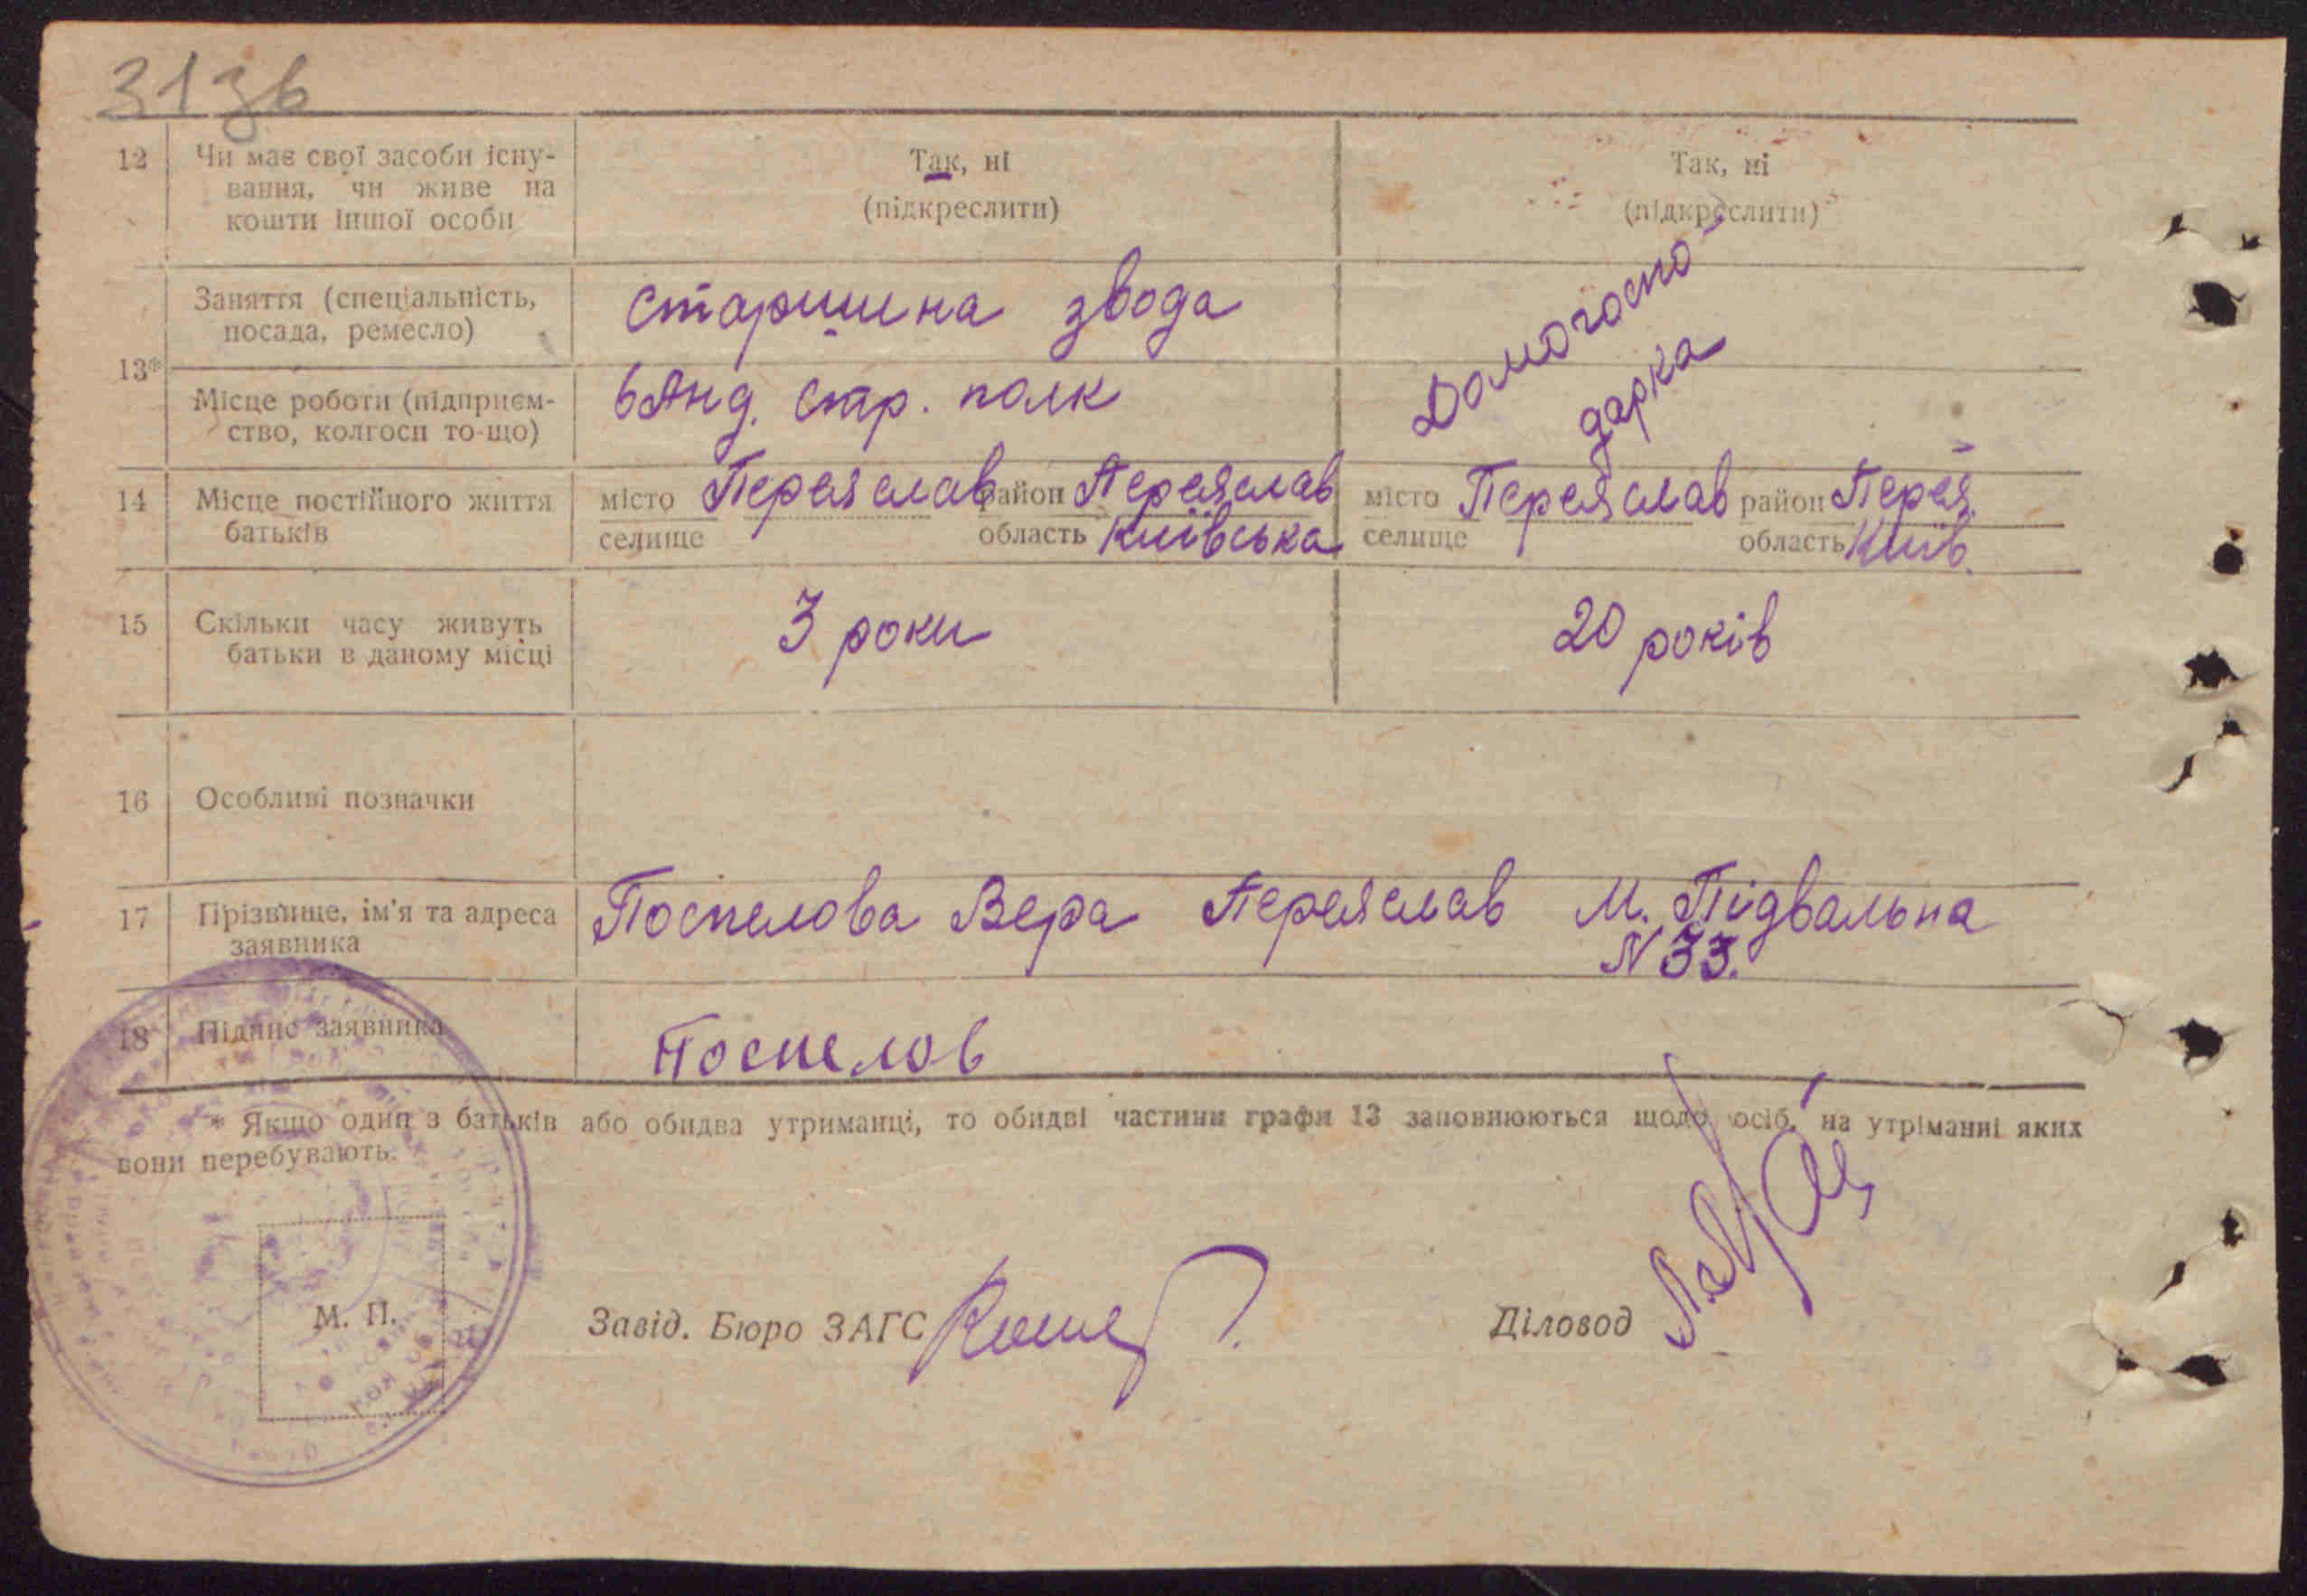 31 зв
12 Чи має свої засоби існу- Так, ні Так, ні
вання, чи живе на (підкреслити) (підкреслити)
кошти іншої особи
13* Заняття (спеціальність, старшина звода Домогоспо-
посада, ремесло) дарка
Місце роботи (підприєм- стр. полк
ство, колгосп то-що)
14 Місце постійного життя місто Переяслав район Переяслав місто Переяслав район Перея.
батьків селище область Київська селище область Київ.
15 Скільки часу живуть 3 роки 20 років
батьки в даному місці
16 Особливі позначки
17 Прізвище, ім'я та адреса Поспелова Вера Переяслав М. Підвальна
заявника N 33.
18 Підпис заявника Поспелов
* Якщо один з батьків або обидва утриманці, то обидві частини графи 13 заповнюються щодо осіб, на утріманні яких
вони перебувають.
М. П. Завід. Бюро ЗАГС Діловод